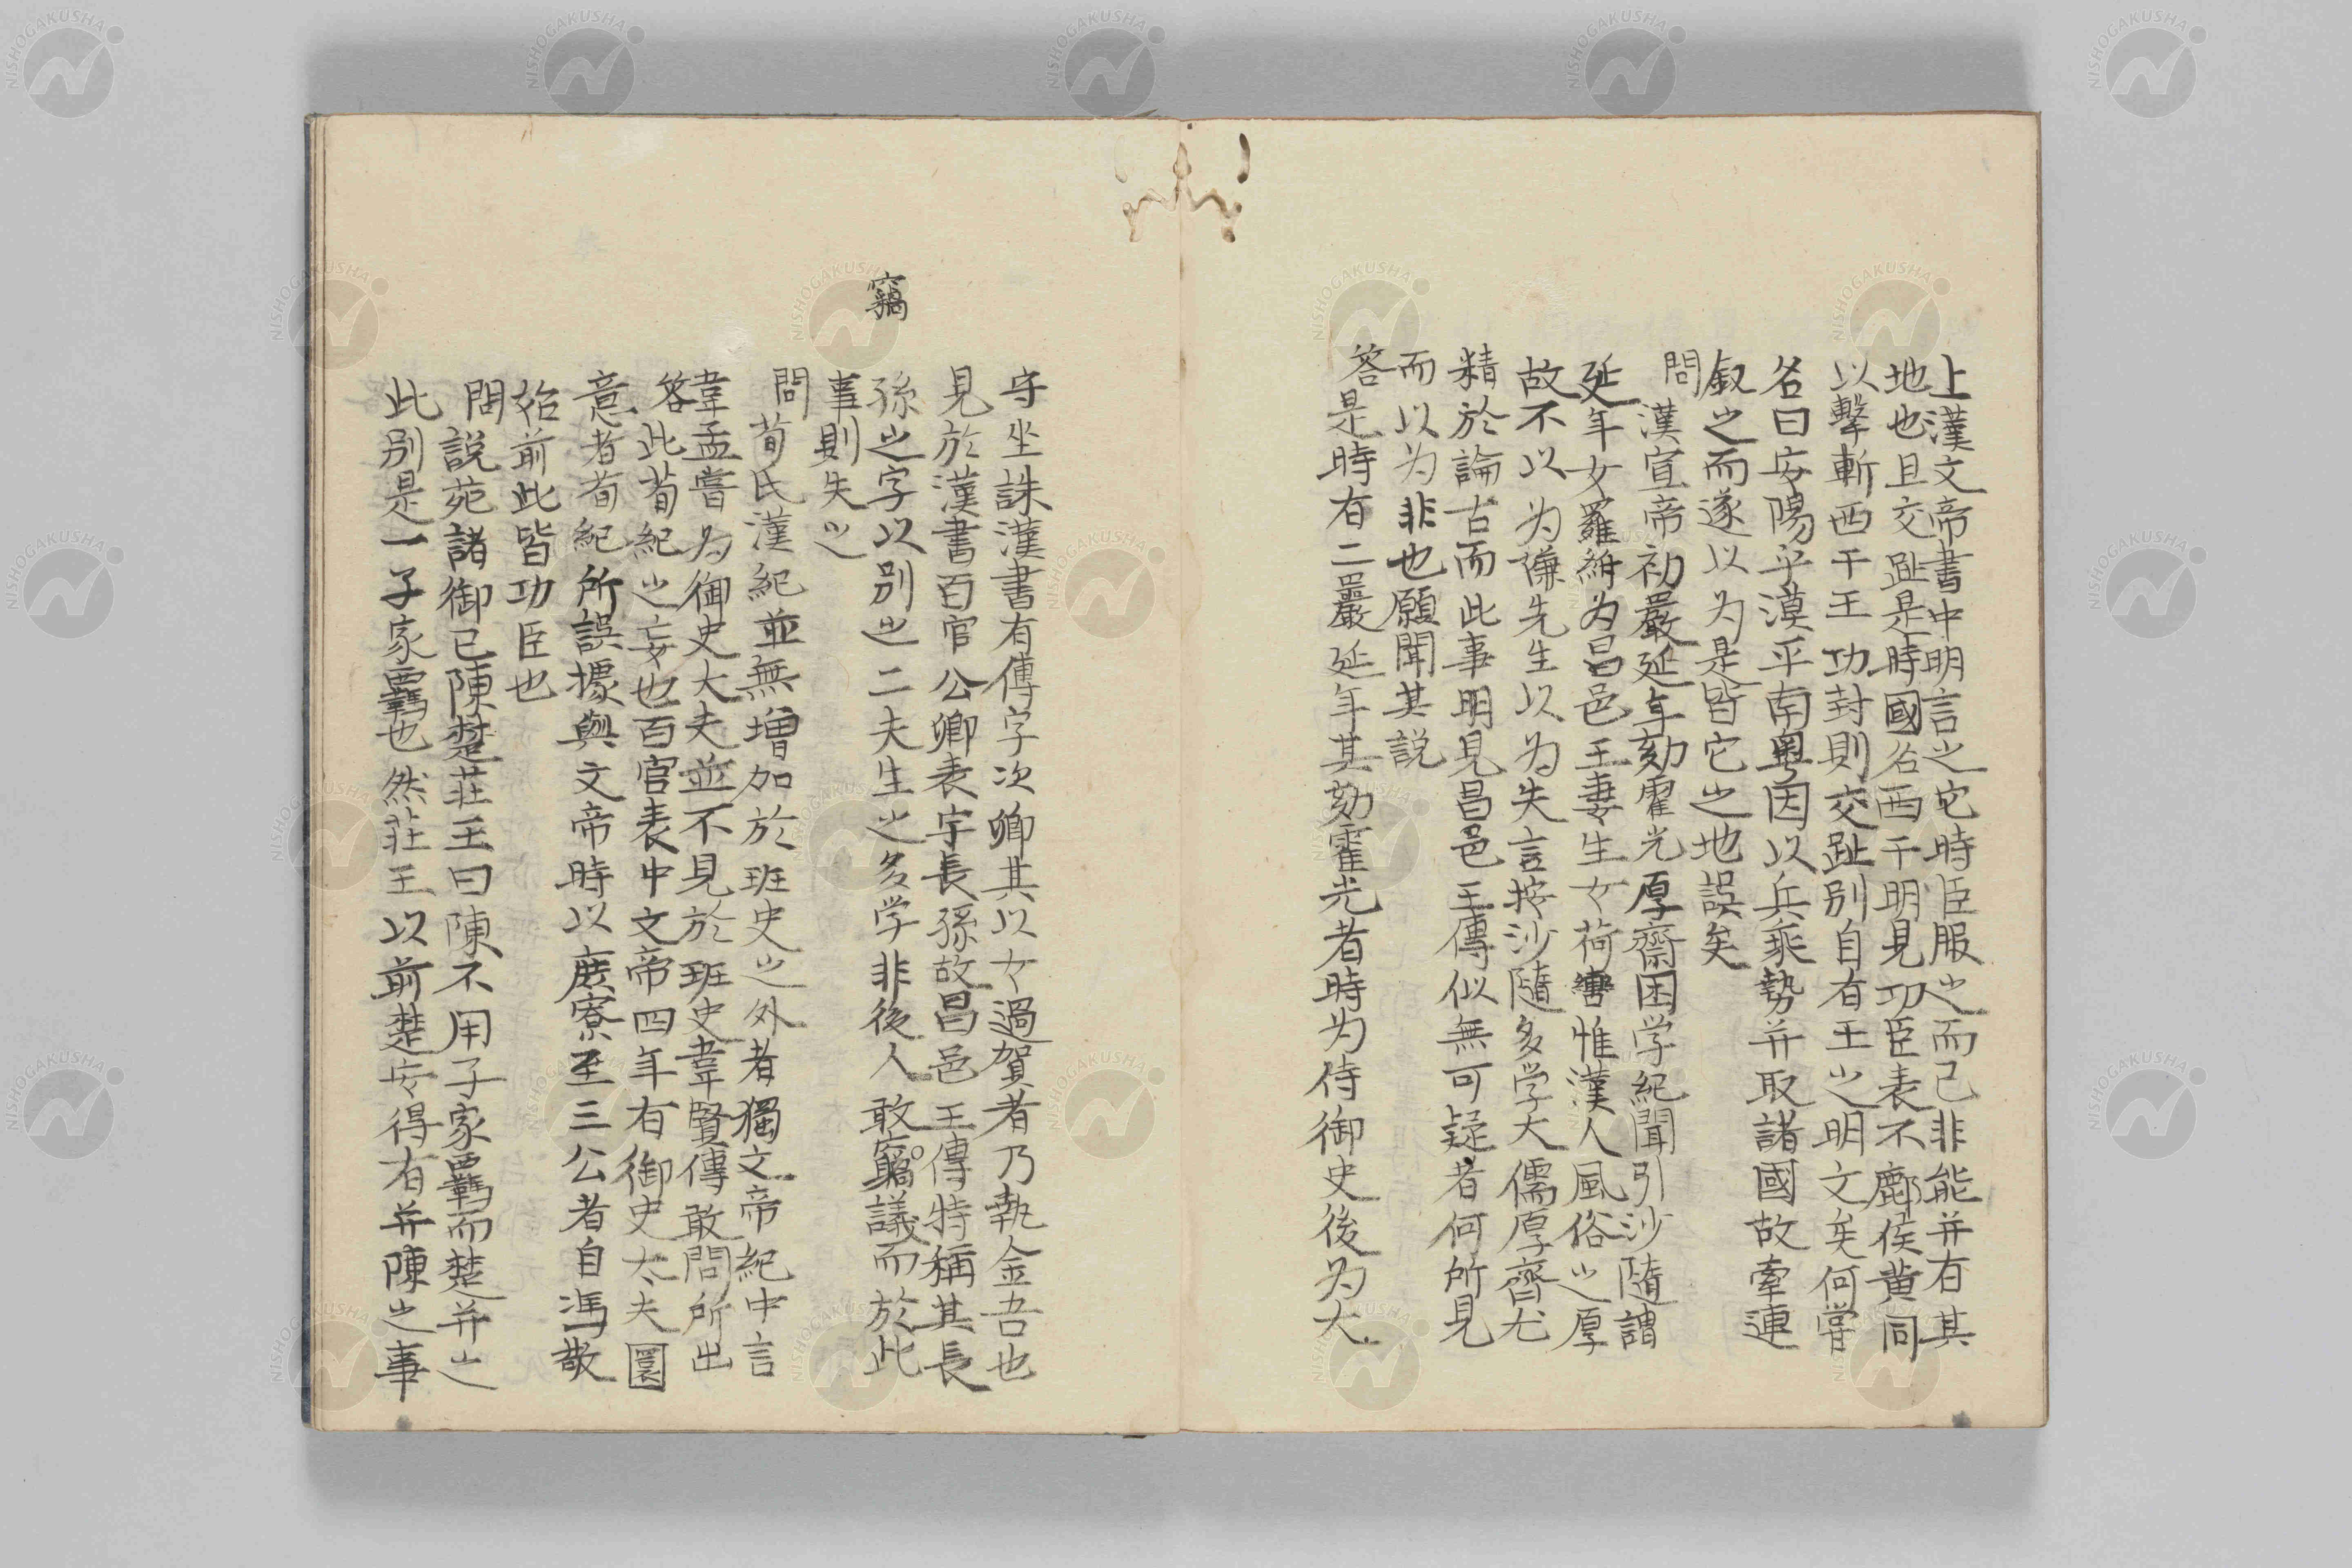 上漢文帝書中明言之它時臣服之而已非能并有其
地也且交趾是時國名西于明見功臣表不鄜侯黄同
以擊斬西于王功封則交趾别自有王之明文矣何嘗
名曰安陽乎漠平南粤因以兵乘勢并取諸國故牽連
叙之而遂以为是皆它之地誤矣
問漢宣帝初嚴延年劾霍光厚齋困学紀聞引沙隨謂
延年女羅紨为昌邑王妻生女荷轡惟漢人風俗之厚
故不以为慊先生以为失言按沙隨多学大儒厚齊尤
精於論古而此事明見昌邑王傳似無可疑者何所見
而以为非也願聞其説
答是時有二嚴延年其劾霍光者時为侍御史後为大
守坐誅漢書有傳字次卿其以女過賀者乃執金吾也
見於漢書百官公卿表字長孫故昌邑王傳特稱其長
孫之字以别之二夫生之多学非後人敢竊議而於此
竊
事則失之
問荀氏漢紀並無增加於班史之外者獨文帝紀中言
韋孟嘗为御史大夫並不見於班史韋賢傳敢問所出
答此荀紀之妄也百官表中文帝四年有御史大夫圍
意者荀紀所誤據與文帝時以庶寮至三公者自馮敬
始前此皆功臣也
問説苑諸御已陳楚莊王曰陳不用子家羈而楚并之
此别是一子家羈也然莊王以前楚安得有并陳之事